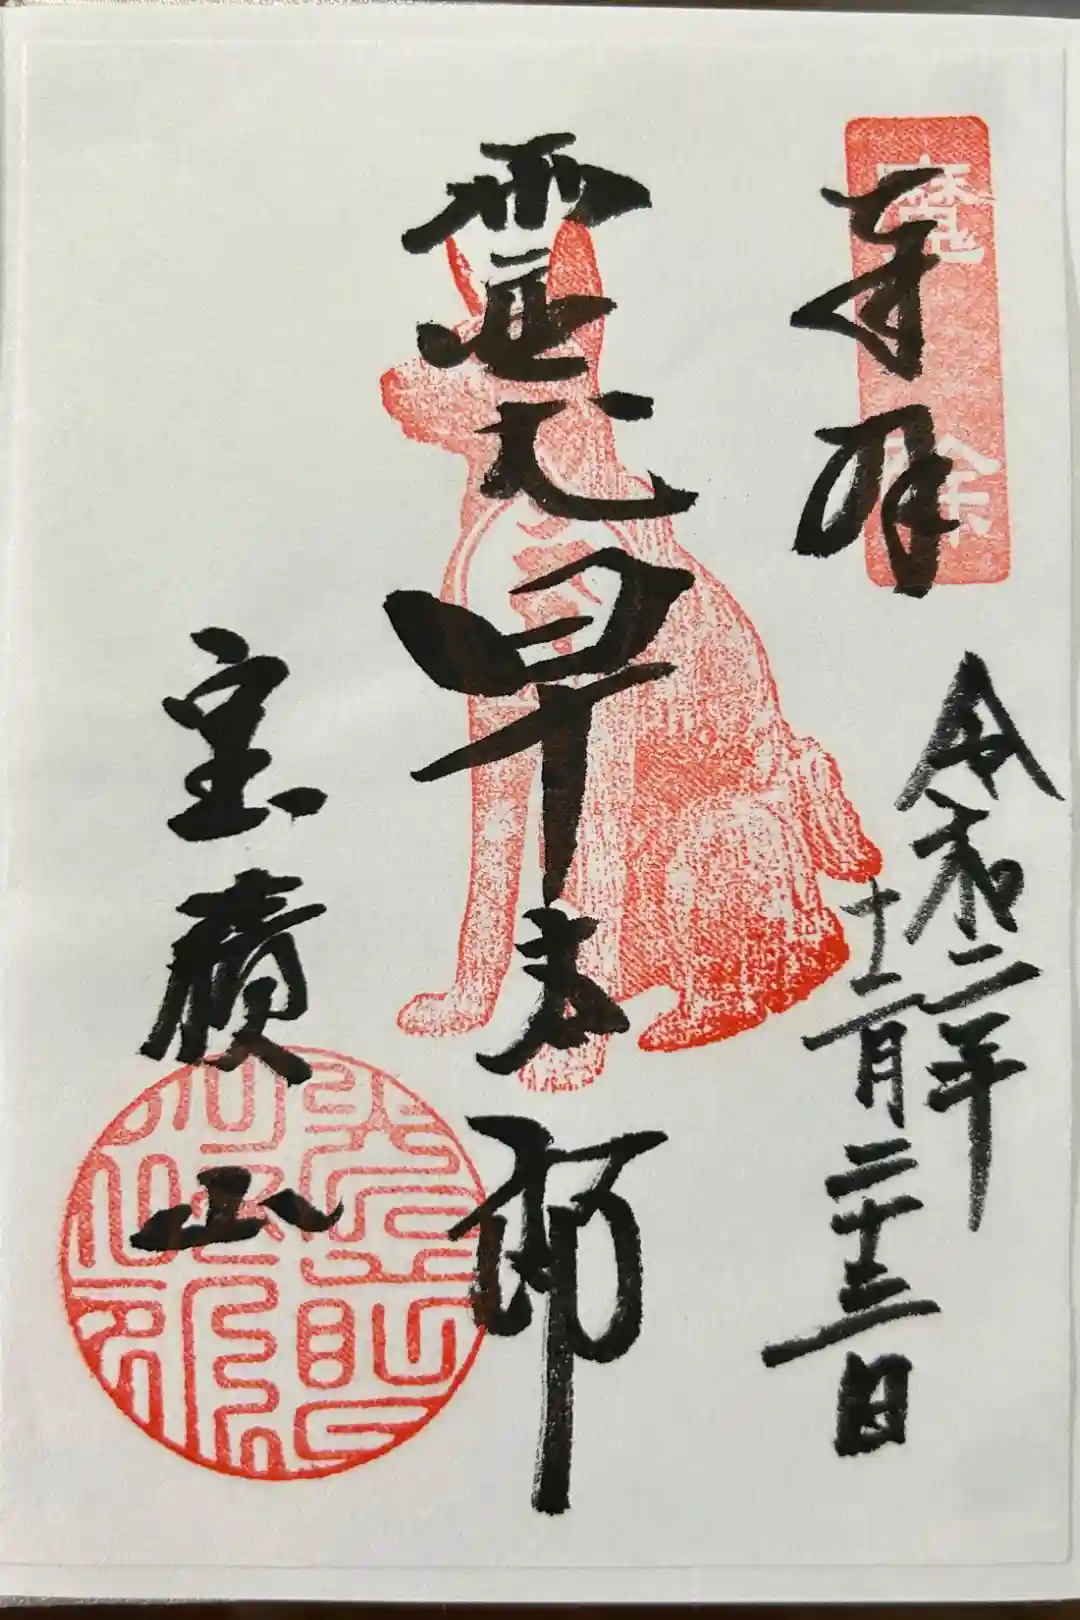 奉拝
魔除
令和二年
十二月二十三日
霊犬早太郎
宝積山